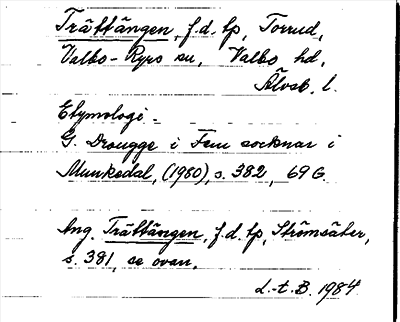 Trättängen, f.d. tp, Torrud,
Valbo-Ryrs sn, Valbo hd,
Älvsb. l.
Etymologi.
G. Drougge i Fem socknar i
Munkedal, (1980), s. 382, 69 G.
Ang. Trättängen, f.d. tp, Strömsäter,
s. 381, se ovan.
L.-t. B. 1984